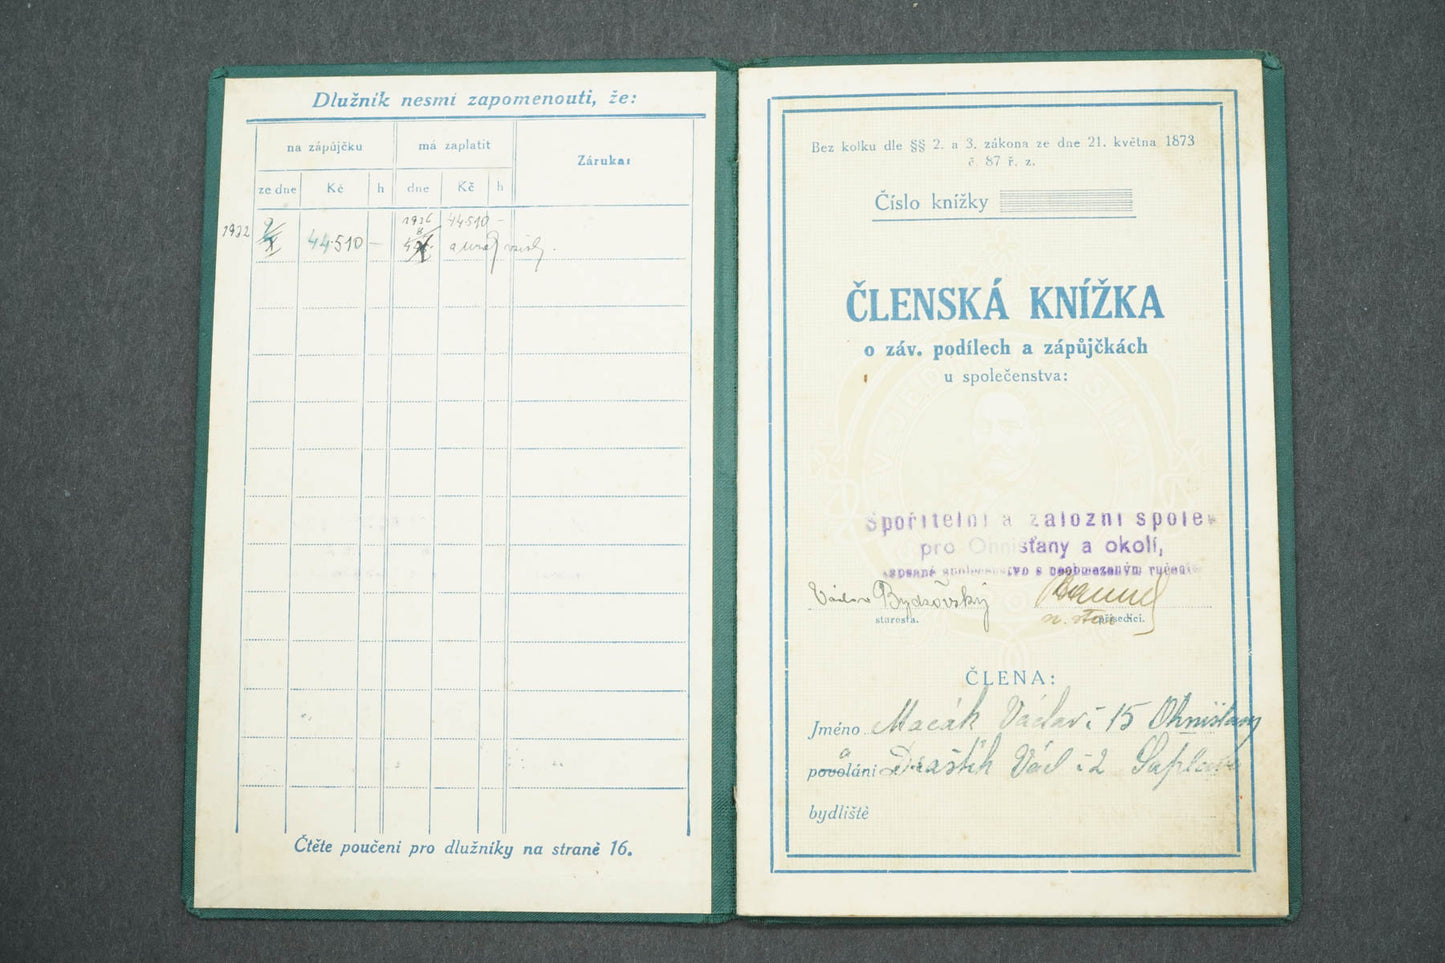 Dlužník nesmí zapomenouti, že:
na zápůjčku má zaplatit Záruka:
ze dne Kč h dne Kč h
1932 44.510 — 1936 44510 —
Čtěte poučení pro dlužníky na straně 16.
Bez kolku dle §§ 2. a 3. zákona ze dne 21. května 1873
č. 87 ř. z.
Číslo knížky
ČLENSKÁ KNÍŽKA
o záv. podílech a zápůjčkách
u společenstva:
V JEDNOTĚ SÍLA
Spořitelní a záložní spole
pro Ohnišťany a okolí,
zapsané společenstvo s neobmezeným ručením
Václav Bydžovský
starosta. přísedící.
ČLENA:
Jméno Macák Václav č 15 Ohnišťany
povolání a Draštík Václ č 2
bydliště